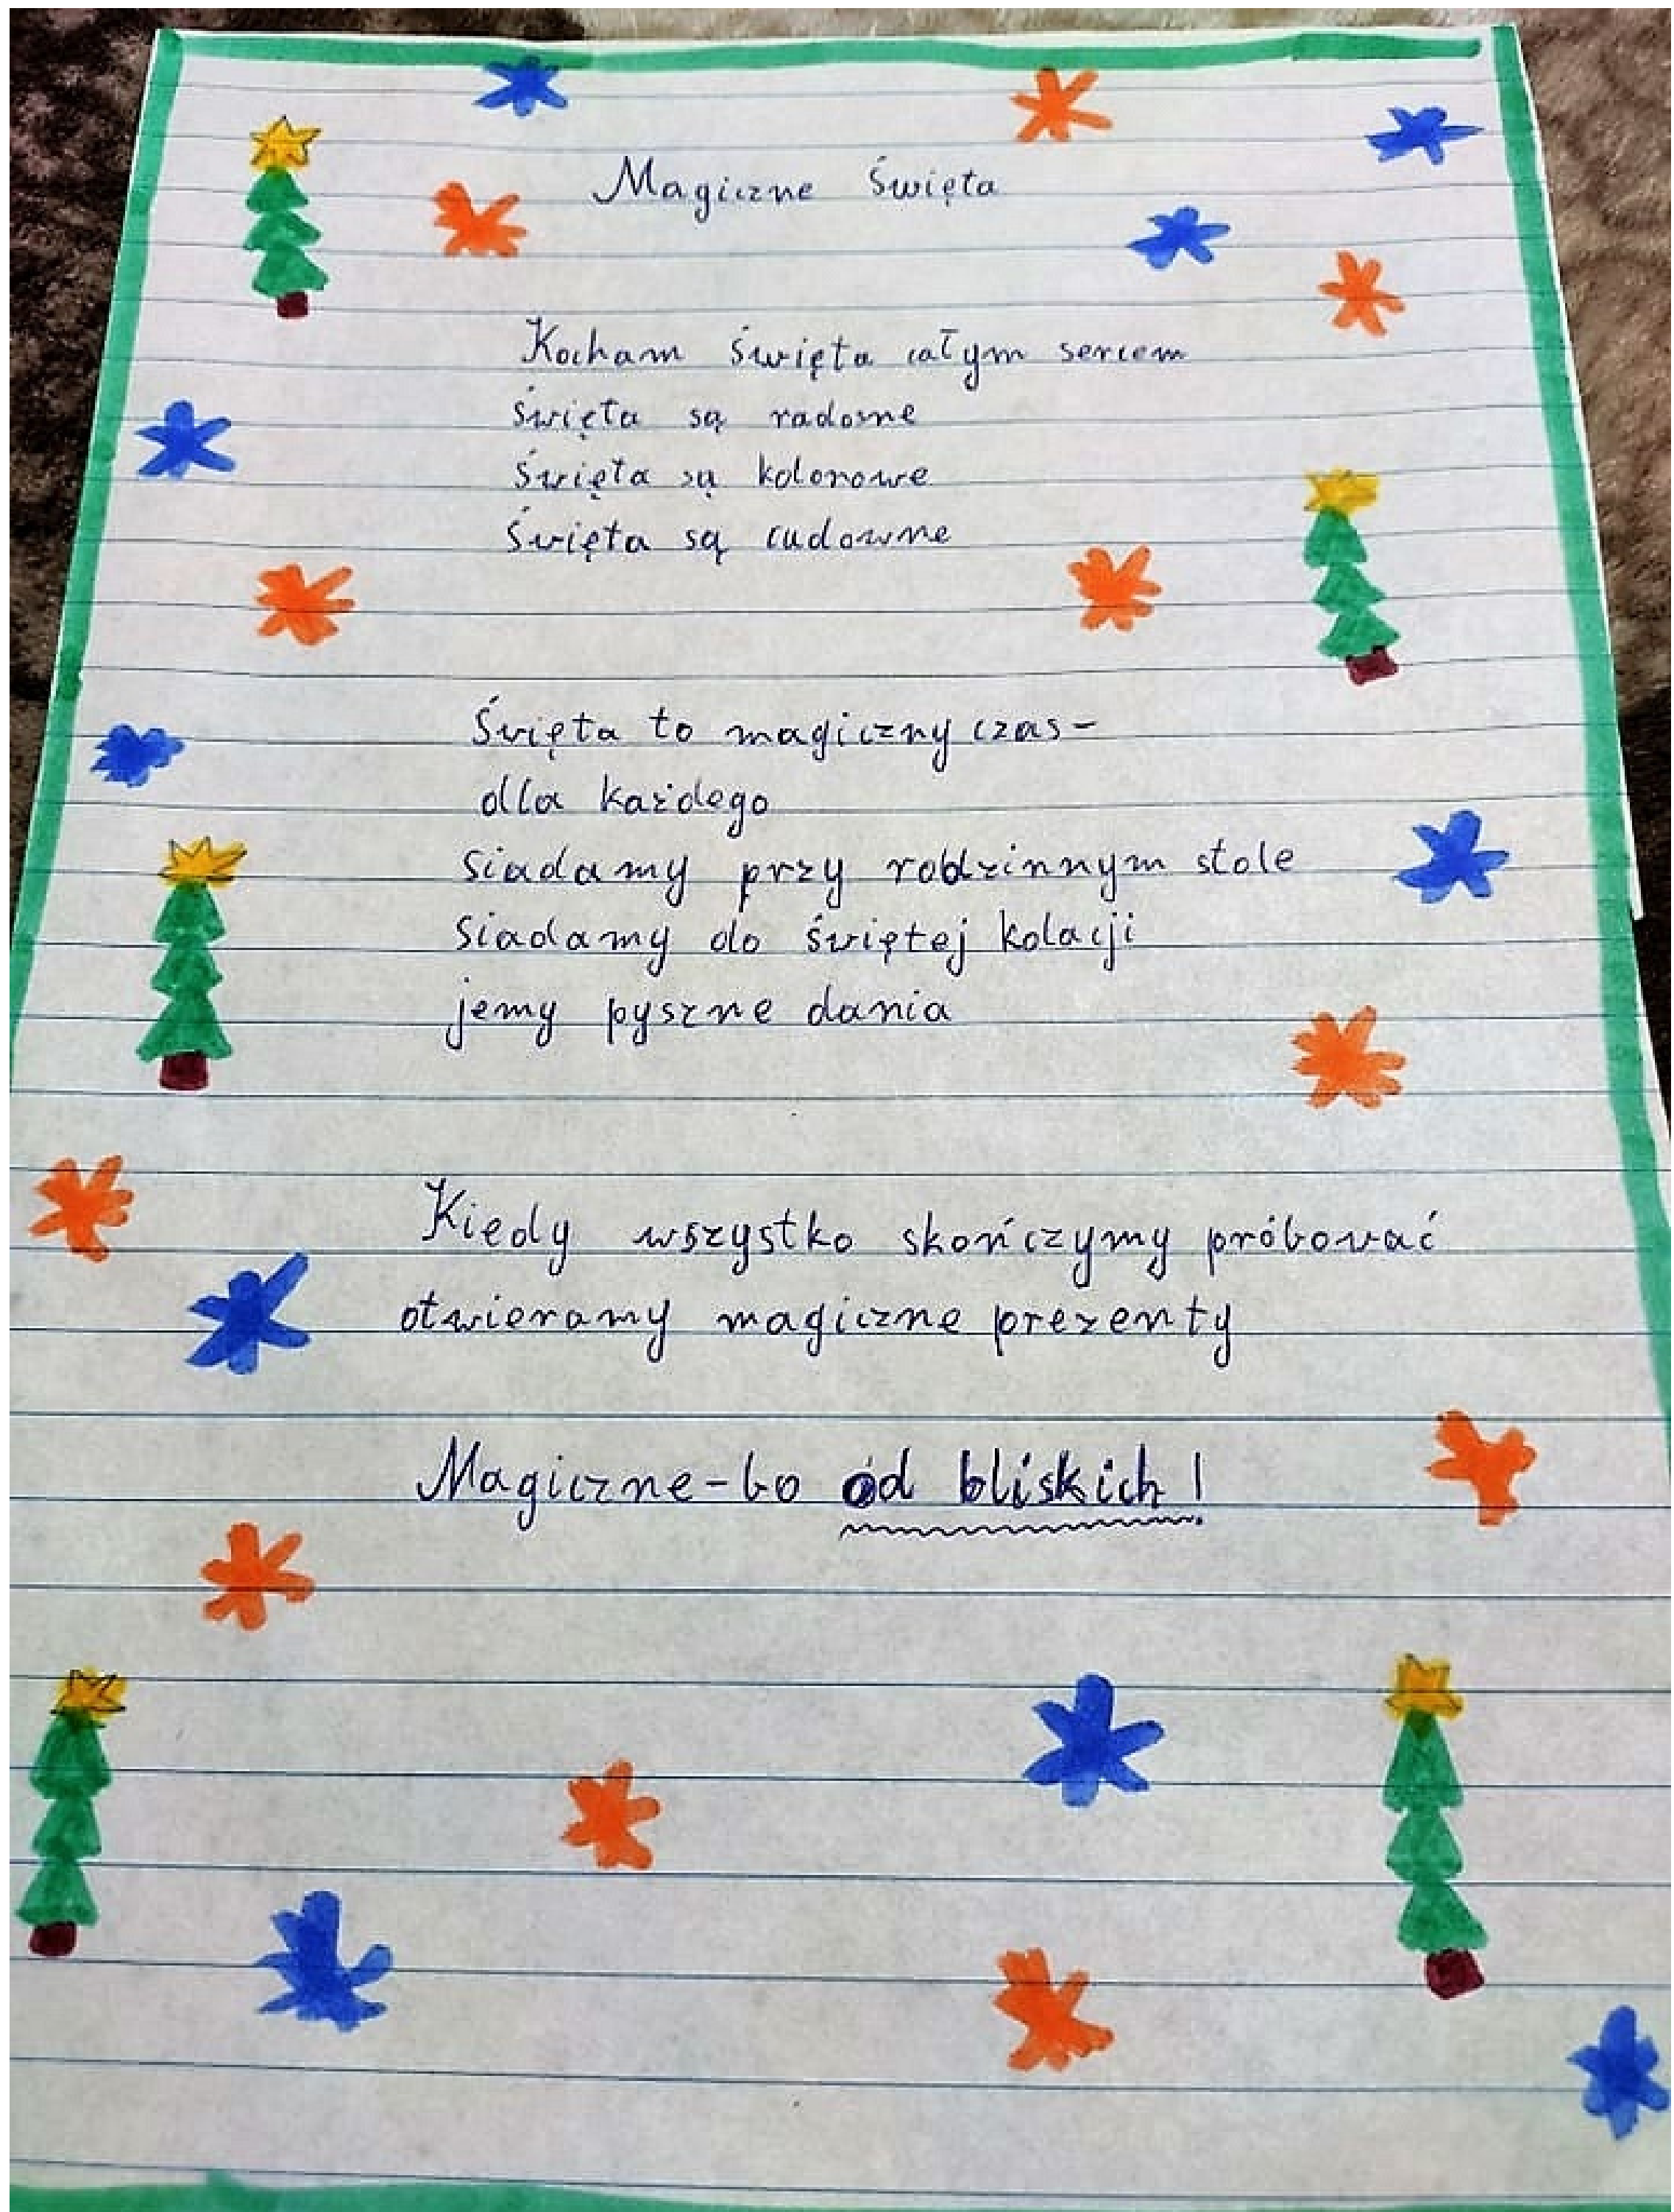 Magiczne Święta
Kocham święta całym sercem
święta są radosne
święta są kolorowe
święta są cudowne
Święta to magiczny czas-
dla każdego
siadamy przy rodzinnym stole
siadamy do świętej kolacji
jemy pyszne dania
Kiedy wszystko skończymy próbować
otwieramy magiczne prezenty
Magiczne-bo od bliskich!